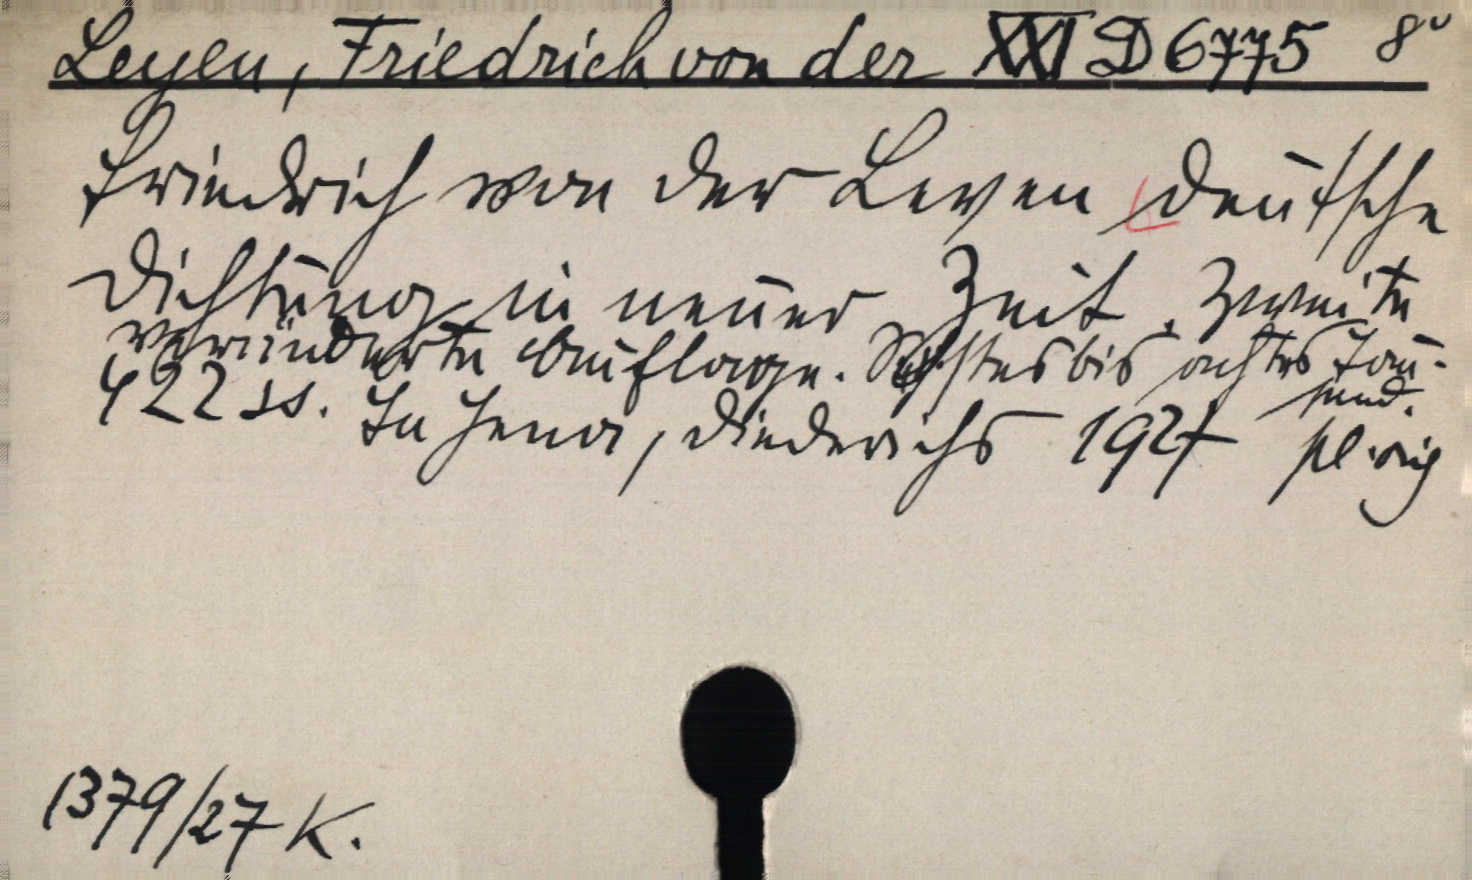 Leyen, Friedrich von der XXI D 6775 8°
Friedrich von der Leyen, Deutsche
Dichtung in neuer Zeit. Zweite
veränderte Auflage. Sechstes bis achtes Tau-
send.
422 ss. In Jena, Diederichs 1927
1379/27 K.